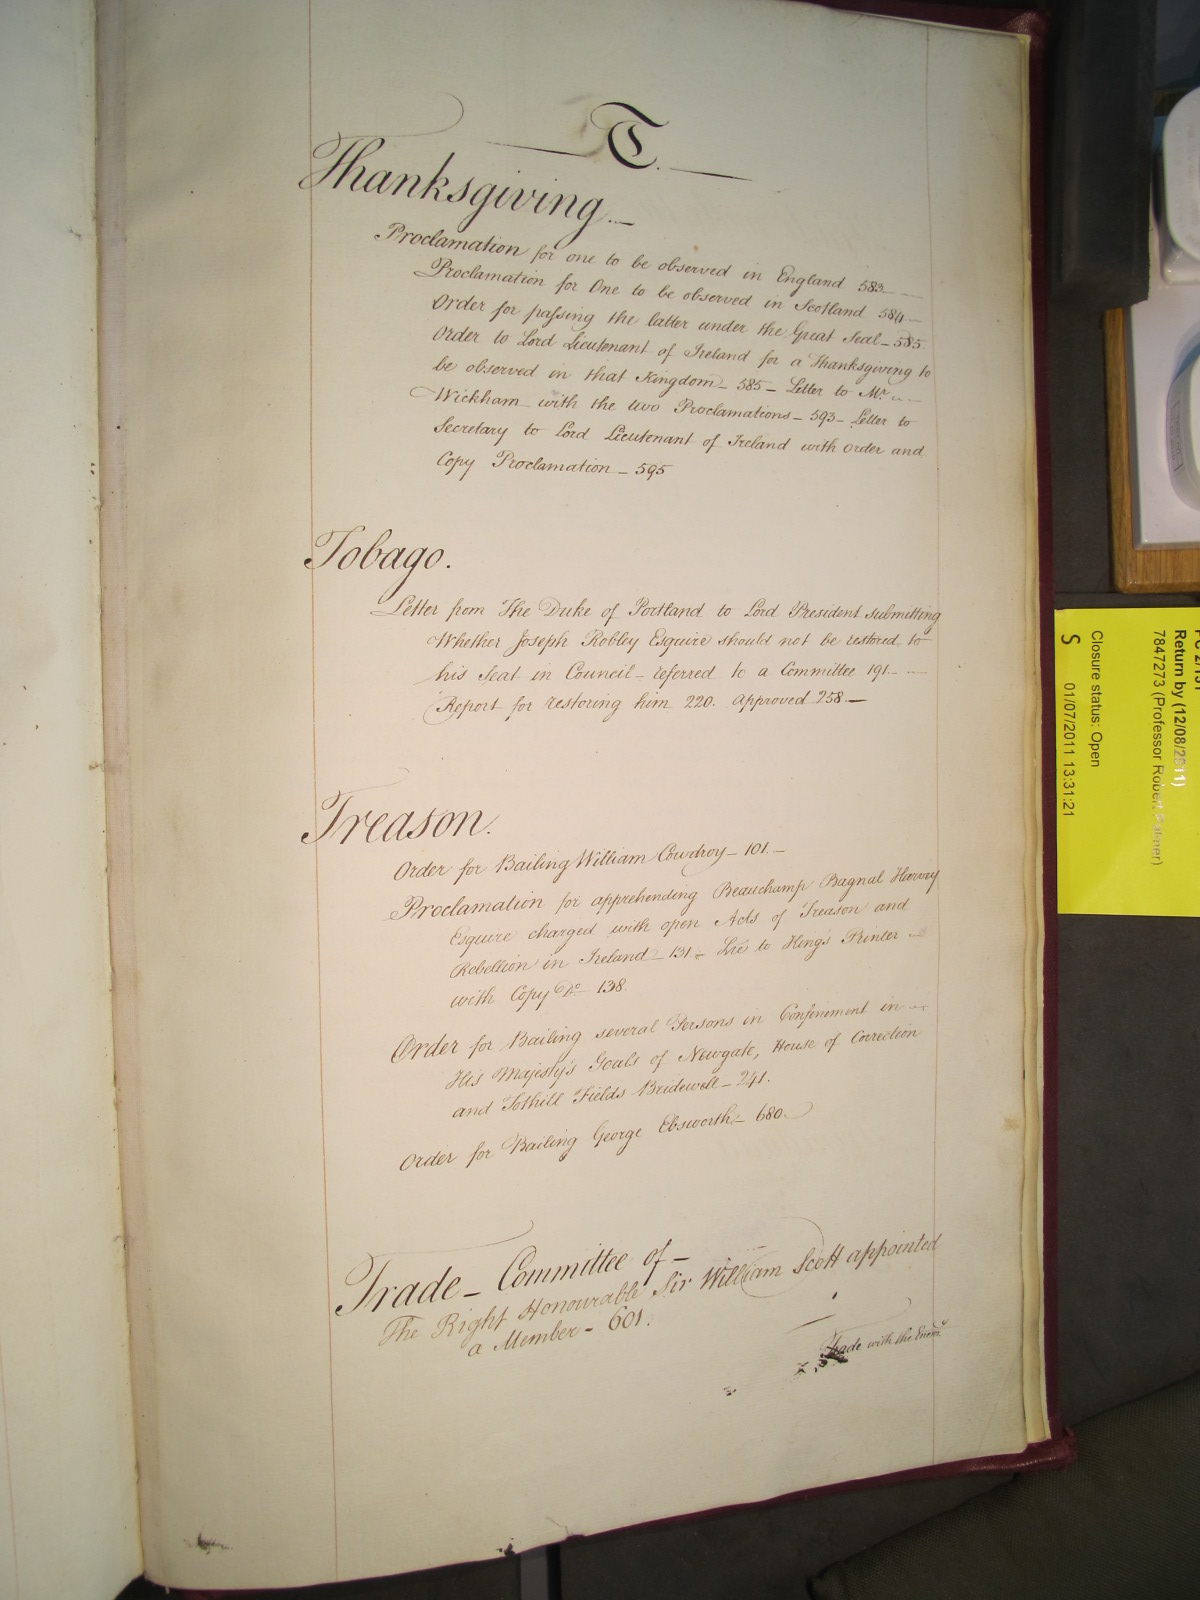 T.
Thanksgiving
Proclamation for one to be observed in England 583
Proclamation for One to be observed in Scotland 584
Order for passing the latter under the Great Seal_ 585
Order to Lord Lieutenant of Ireland for a Thanksgiving to
be observed in that Kingdom_ 585_ Letter to Mr.
Wickham with the two Proclamations_ 593_ Letter to
Secretary to Lord Lieutenant of Ireland with Order and
Copy Proclamation_ 595
Tobago.
Letter from The Duke of Portland to Lord President submitting
Whether Joseph Robley Esquire should not be restored to
his Seat in Council_ referred to a Committee 191.
Report for restoring him 220. Approved 258._
Treason.
Order for Bailing William Cowdroy_ 101._
Proclamation for apprehending Beauchamp Bagnal Harvey
Esquire charged with open Acts of Treason and
Rebellion in Ireland_ 131_ to King's Printer
with Copy Do. 138.
Order for Bailing several Persons in Confinement in
His Majesty's Goals of Newgate, House of Correction
and Tothill Fields Bridewell_ 241.
Order for Bailing George Ebsworth_ 680.
Trade_ Committee of_
The Right Honourable Sir William Scott appointed
a Member_ 601.
Trade with the
Return by (12/08/2011)
7847273 (Professor Robert Palmer)
Closure status: Open
S 01/07/2011 13:31:21